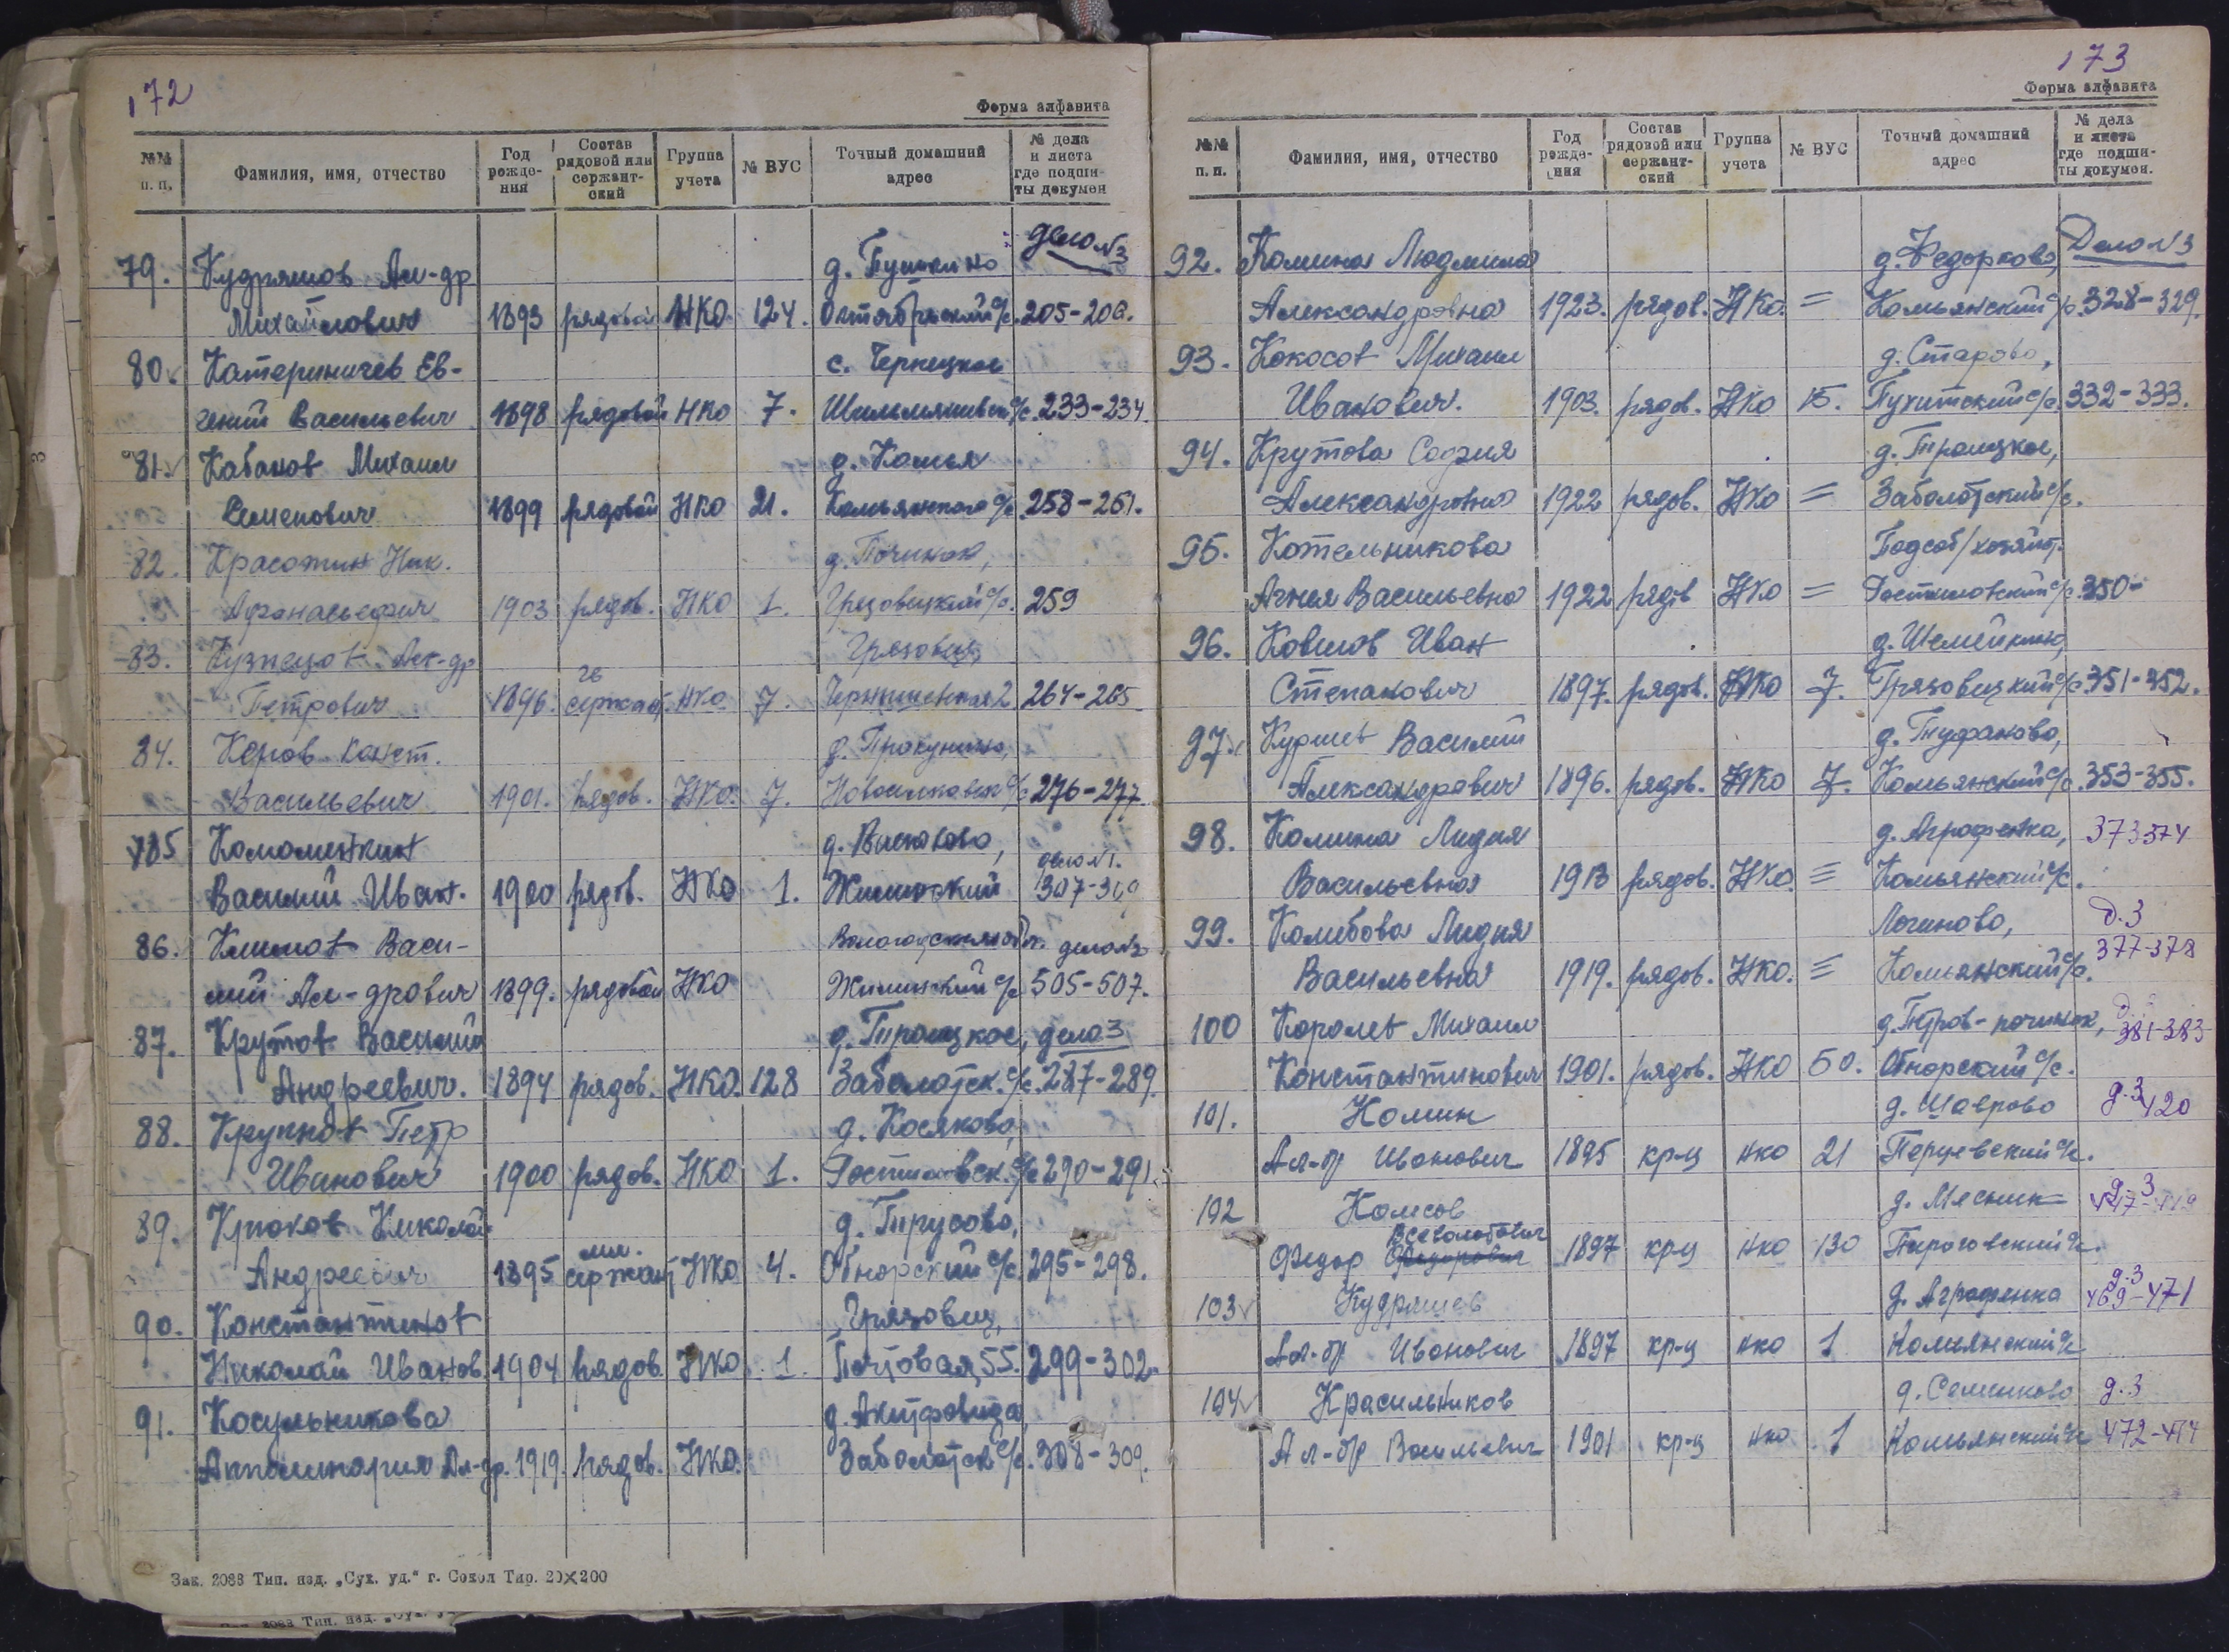 172
Форма алфавита
№№ п. п. Фамилия, имя, отчество Год рождения Состав рядовой или сержантский Группа учета № ВУС Точный домашний адрес № дела и листа где подшиты докумен
79. Кудряшов Ал-др д. Пушкино дело №3
Михайлович 1893 рядовой НКО 124. Октябрьский с/с. 205-206.
80. Катериничев Ев- с. Чернецкое
гений Васильевич 1898 рядовой НКО 7. с/с. 233-234.
81. Кабанов Михаил д. Комья
Семенович 1899 рядовой НКО 21. Комьянского с/с 258-261.
82. Красотин Ник. д. Починок,
Афанасьевич 1903 рядов. НКО 1. Грязовецкий с/с. 259
83. Кузнецов Ал-др Грязовец,
Петрович 1896. сержант НКО 7. 264-265
84. Керов Конст. д. Прокунино,
Васильевич 1901. рядов. НКО. 7. с/с 276-277.
785 Коломенкин д. дело №1.
Василий Иван. 1900 рядов. НКО 1. Жилинский 307-
86. Климов Васи- дело №2
лий Ал-дрович 1899. рядовой НКО Жилинский с/с 505-507.
87. Крутов Василий д. Троицкое, дело 3
Андреевич. 1894 рядов. НКО. 128 Заболотск. с/с. 287-289.
88. Крупнов Петр д. Косяково,
Иванович 1900 рядов. НКО 1. Ростиловск. с/с 290-291.
89. Крюков Николай д. Трусово,
Андреевич 1895 мл. сержант НКО 4. Обнорский с/с 295-298.
90. Константинов Грязовец,
Николай Иванов. 1904 рядов. НКО 1. Почтовая, 55. 299-302.
91. Косульникова д.
Апполинария Ал-др. 1919. рядов. НКО. Заболотск с/с. 308-309.
Зак. 2088 Тип. изд. „Сух. уд." г. Сокол Тир. 20×200
173
Форма алфавита
№№ п. п. Фамилия, имя, отчество Год рождения Состав рядовой или сержантский Группа учета № ВУС Точный домашний адрес № дела и листа где подшиты докумен.
92. Калина Людмила д. Федорково, Дело №3
Александровна 1923. рядов. НКО. = Комьянский с/с. 328-329.
93. Кокосов Михаил д. Старово,
Иванович. 1903. рядов. НКО 15. Пухитский с/с. 332-333.
94. Крутова София д. Троицкое,
Александровна 1922 рядов. НКО = Заболотский с/с.
95. Котельникова Подсоб/хозяйст.
Агнея Васильевна 1922 рядов НКО = Ростиловский с/с. 350-
96. Ковшов Иван д. Шемейкино,
Степанович 1897. рядов. НКО 7. Грязовецкий с/с 351-352.
97. Василий д. Туфаново,
Александрович 1896. рядов. НКО 7. Комьянский с/с. 353-355.
98. Калина Лидия д. Аграфенка, 373 374
Васильевна 1913 рядов. НКО. = Комьянский с/с.
99. Колибова Лидия Логиново, д. 3
Васильевна 1919. рядов. НКО. = Комьянский с/с. 377-378
100 Королев Михаил д. Петров-починок, 381-383
Константинович 1901. рядов. НКО 50. Обнорский с/с.
101. Комин д. Шаврово д. 3 420
Ал-др Иванович 1895 кр-ц нко 21 Перцевский с/с.
102 Колесов д. Мясник д. 3
Федор Всеволодович 1897 кр-ц нко 130 Пироговский с/с.
103 Кудряшев д. Аграфенка д. 3 469-471
Ал-др Иванович 1897 кр-ц нко 1 Комьянский с/с
104 Красильников д. Семенково д. 3
Ал-др Васильевич 1901 кр-ц нко 1 Комьянский с/с 472-474